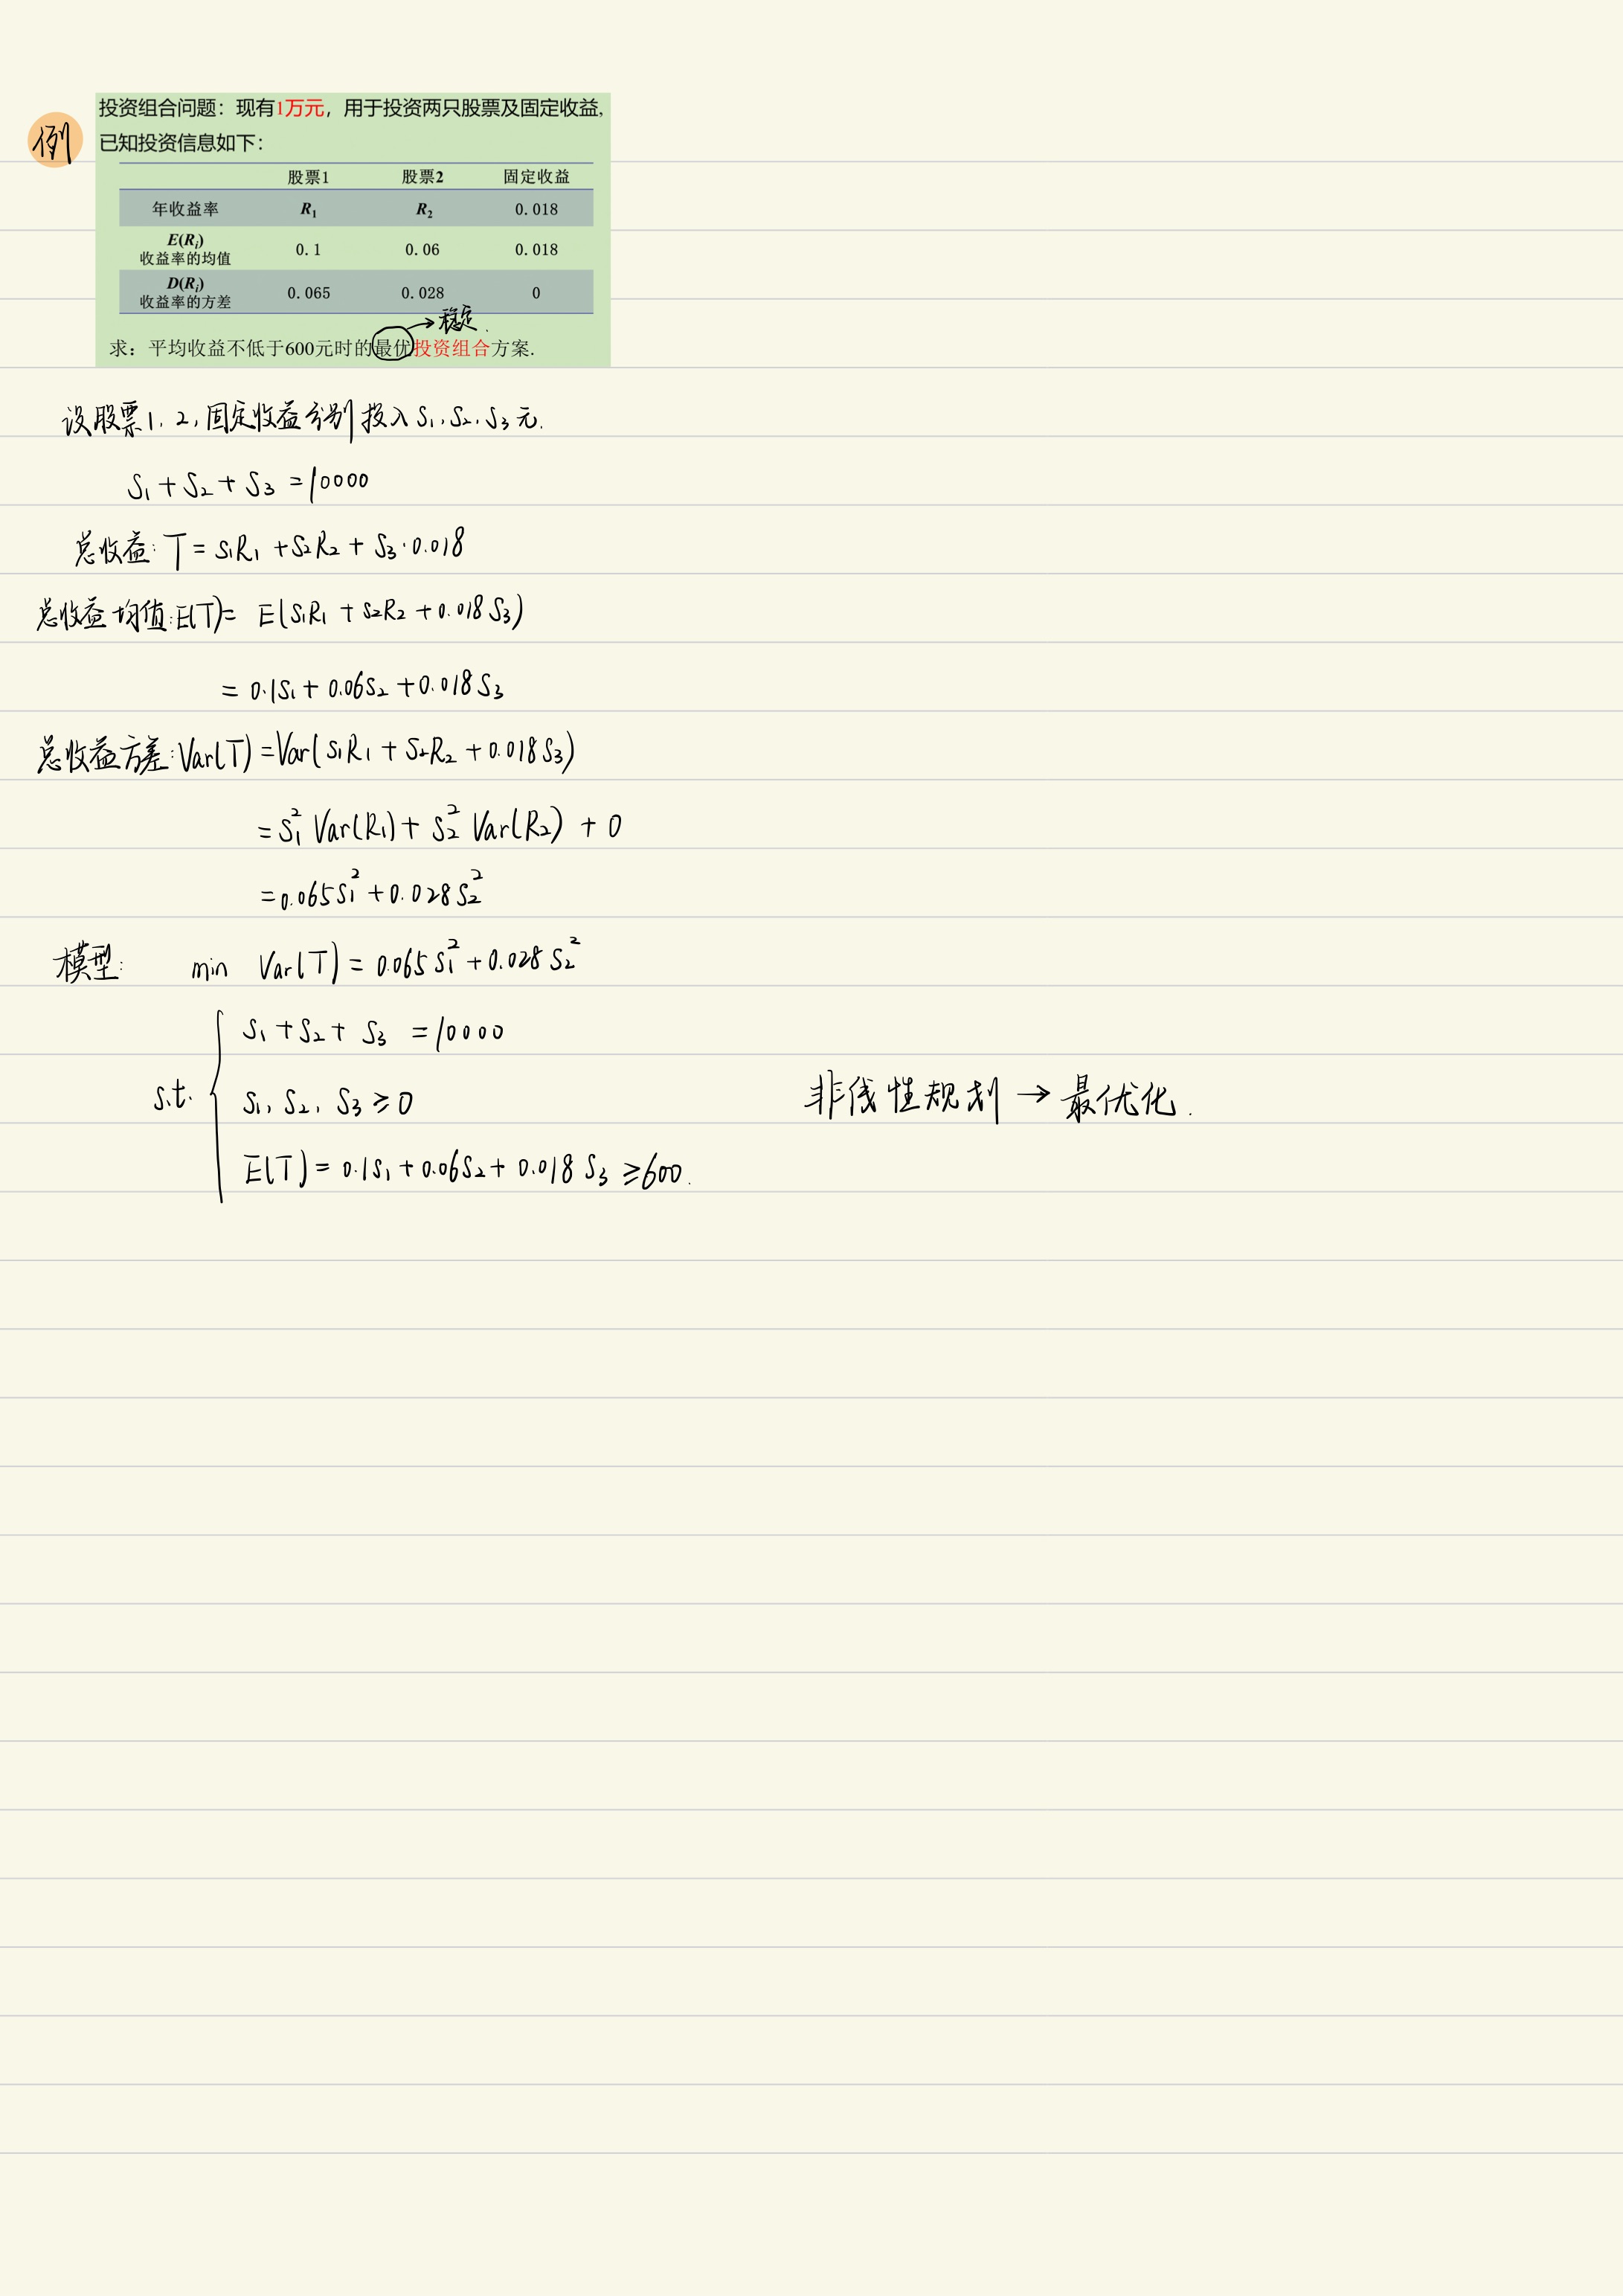 例
投资组合问题：现有1万元，用于投资两只股票及固定收益,
已知投资信息如下：
股票1 股票2 固定收益
年收益率 R₁ R₂ 0.018
E(Rᵢ) 收益率的均值 0.1 0.06 0.018
D(Rᵢ) 收益率的方差 0.065 0.028 0
→稳定.
求：平均收益不低于600元时的最优投资组合方案.
设股票1, 2, 固定收益分别投入 S₁, S₂, S₃ 元.
S₁ + S₂ + S₃ = 10000
总收益: T = S₁R₁ + S₂R₂ + S₃·0.018
总收益均值: E(T) = E(S₁R₁ + S₂R₂ + 0.018S₃)
= 0.1S₁ + 0.06S₂ + 0.018S₃
总收益方差: Var(T) = Var(S₁R₁ + S₂R₂ + 0.018S₃)
= S₁² Var(R₁) + S₂² Var(R₂) + 0
= 0.065S₁² + 0.028S₂²
模型: min Var(T) = 0.065S₁² + 0.028S₂²
S₁ + S₂ + S₃ = 10000
s.t. S₁, S₂, S₃ ≥ 0
非线性规划 → 最优化.
E(T) = 0.1S₁ + 0.06S₂ + 0.018S₃ ≥ 600.